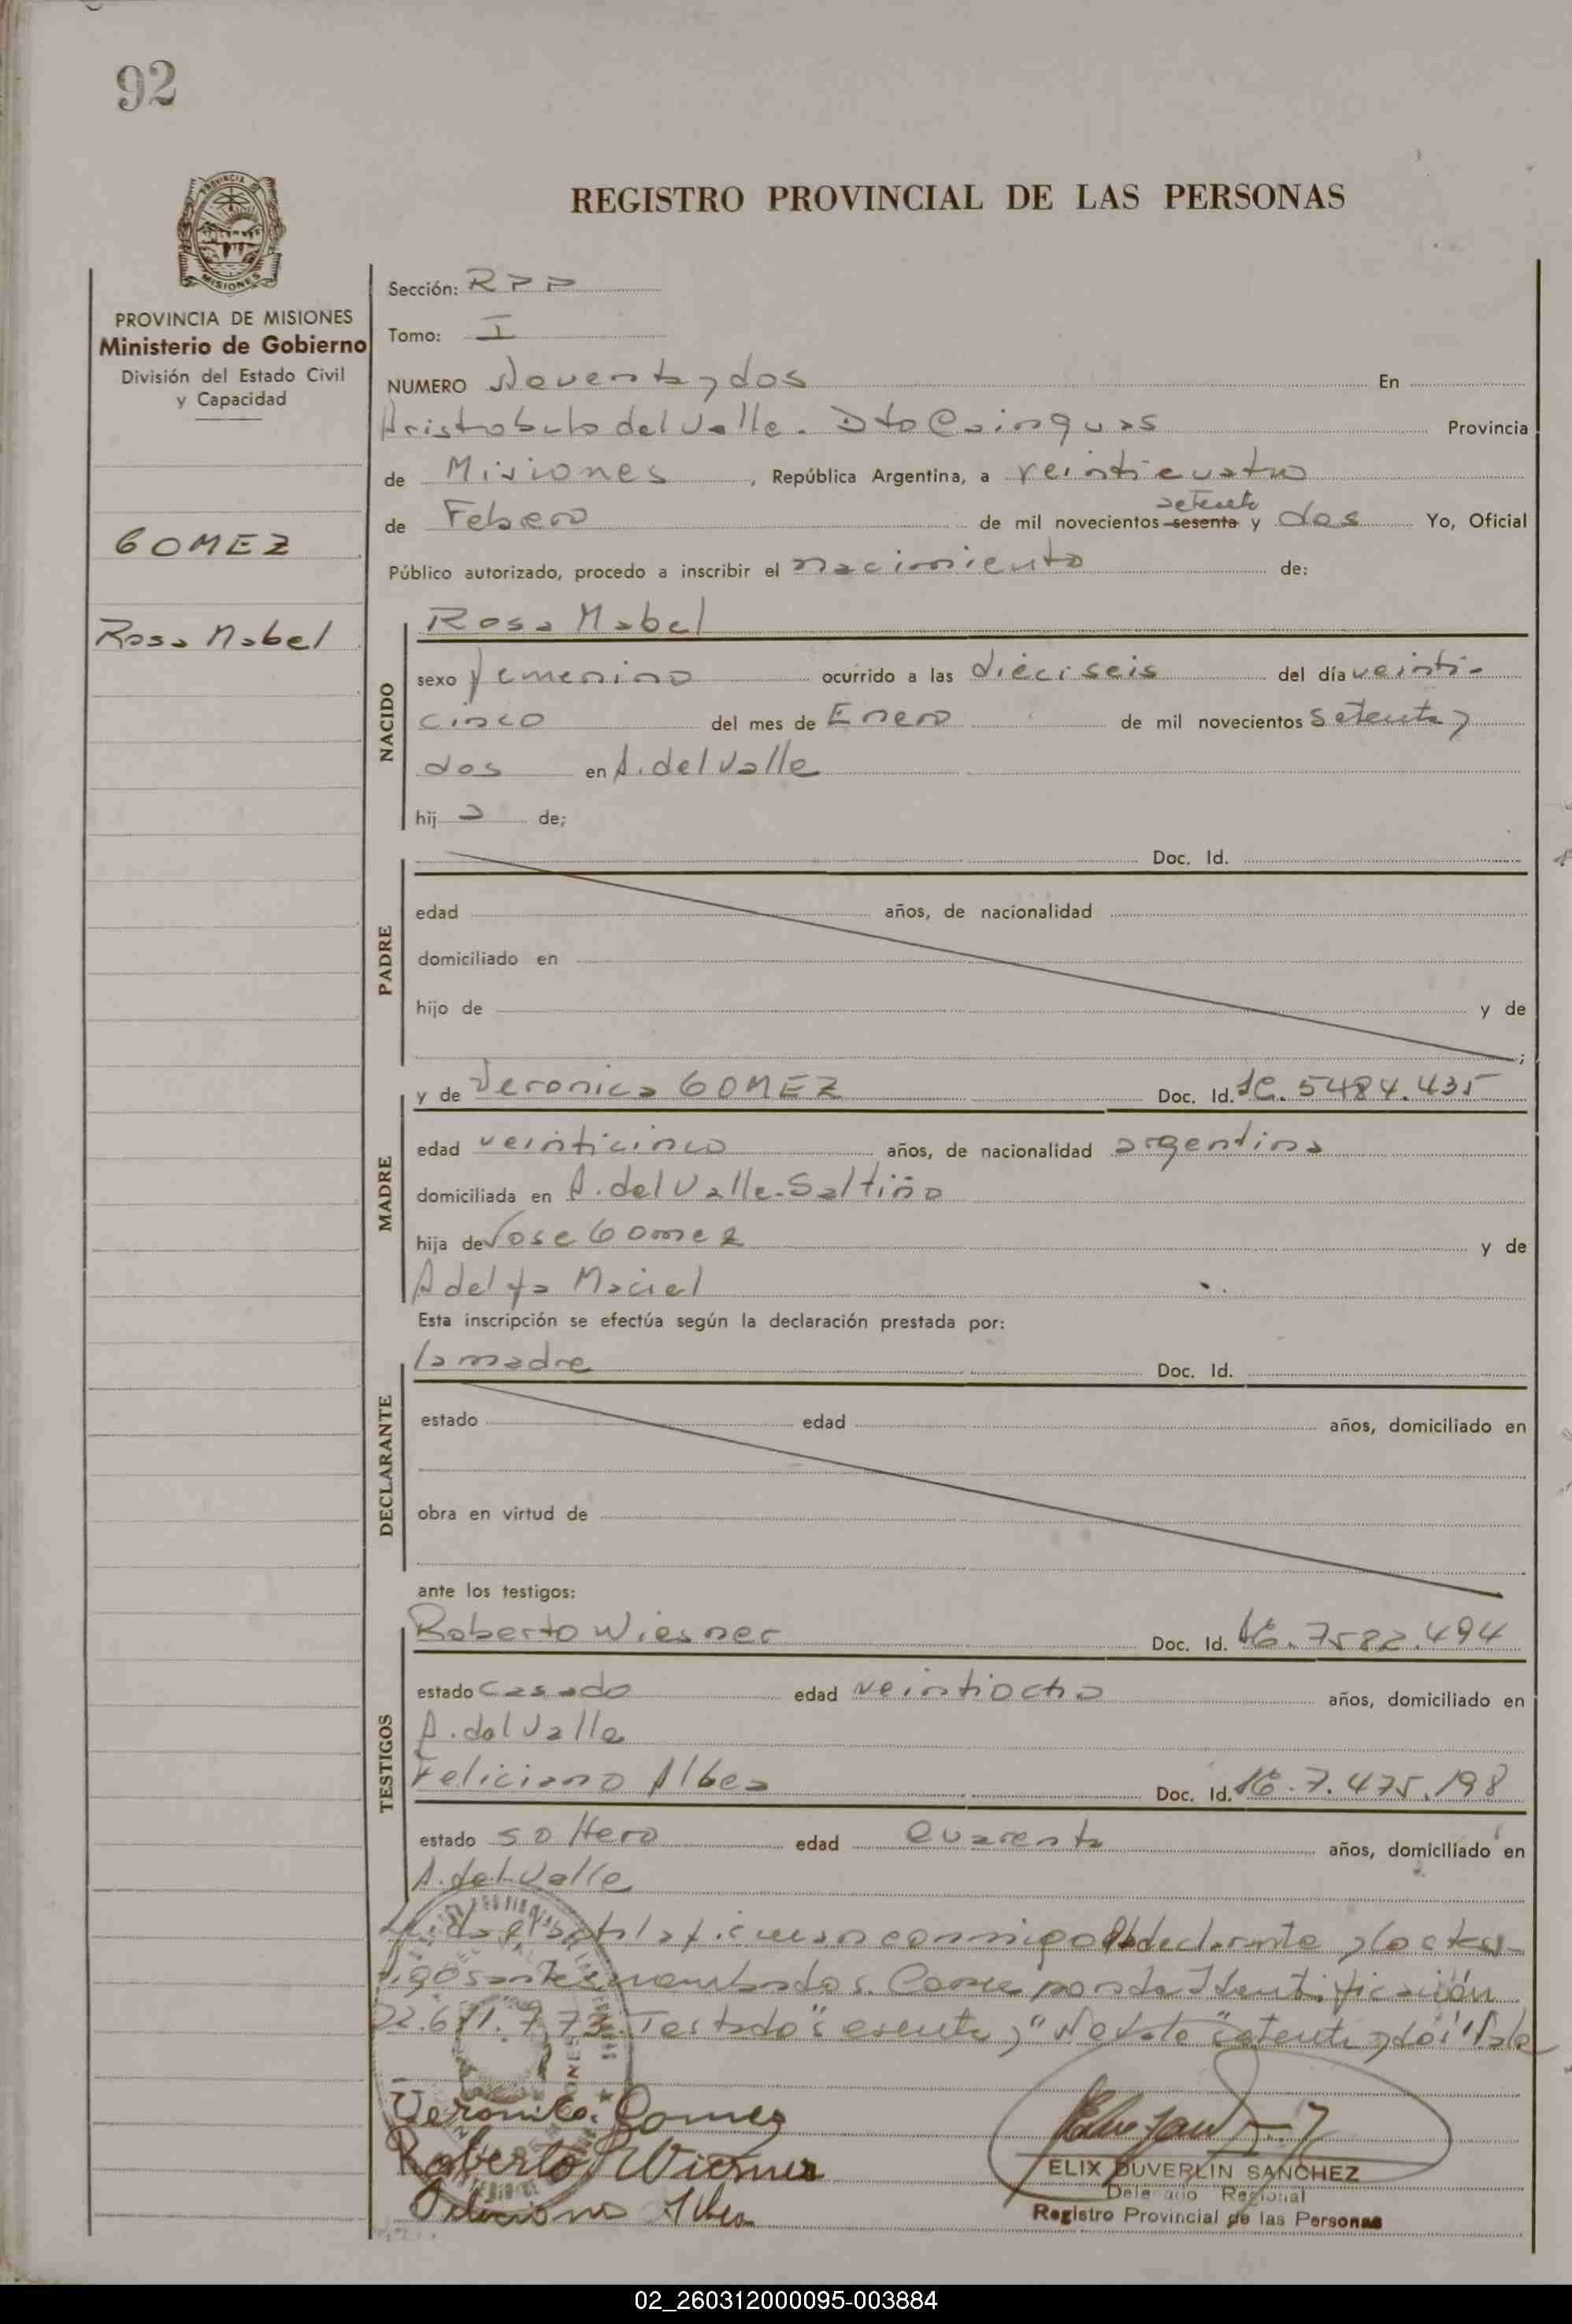 92
PROVINCIA DE
MISIONES
REGISTRO PROVINCIAL DE LAS PERSONAS
PROVINCIA DE MISIONES
Ministerio de Gobierno
División del Estado Civil
y Capacidad
GOMEZ
Rosa Mabel
Sección: RPP
Tomo: I
NUMERO Noventa y dos En
Aristobulo del Valle. Dto Cainguas Provincia
de Misiones, República Argentina, a veinticuatro
setenta
de Febrero de mil novecientos sesenta y dos Yo, Oficial
Público autorizado, procedo a inscribir el nacimiento de:
NACIDO
Rosa Mabel
sexo femenino ocurrido a las dieciseis del día veinti-
cinco del mes de Enero de mil novecientos setenta y
dos en A. del Valle
hija de;
PADRE
Doc. Id.
edad años, de nacionalidad
domiciliado en
hijo de y de
;
MADRE
y de Veronica GOMEZ Doc. Id. 5484.435
edad veinticinco años, de nacionalidad argentina
domiciliada en A. del Valle-Saltiño
hija de Jose Gomez y de
Adelfa Maciel
Esta inscripción se efectúa según la declaración prestada por:
DECLARANTE
la madre Doc. Id.
estado edad años, domiciliado en
obra en virtud de
ante los testigos:
TESTIGOS
Roberto Wiesner Doc. Id. 7582.494
estado casado edad veintiocho años, domiciliado en
A. del Valle
Feliciano Albea Doc. Id. 7.475.198
estado soltero edad cuarenta años, domiciliado en
A. del Valle
Leida el acta la firman conmigo declarante y los tes-
tigos antes nombrados. Corresponde Identificación
22.611.773. Testado "esenta y" No vale "setenta y dos" Vale
Veronica Gomez
Roberto Wiesner
Feliciano Albea
ELIX DUVERLIN SANCHEZ
Delegado Regional
Registro Provincial de las Personas
02_260312000095-003884